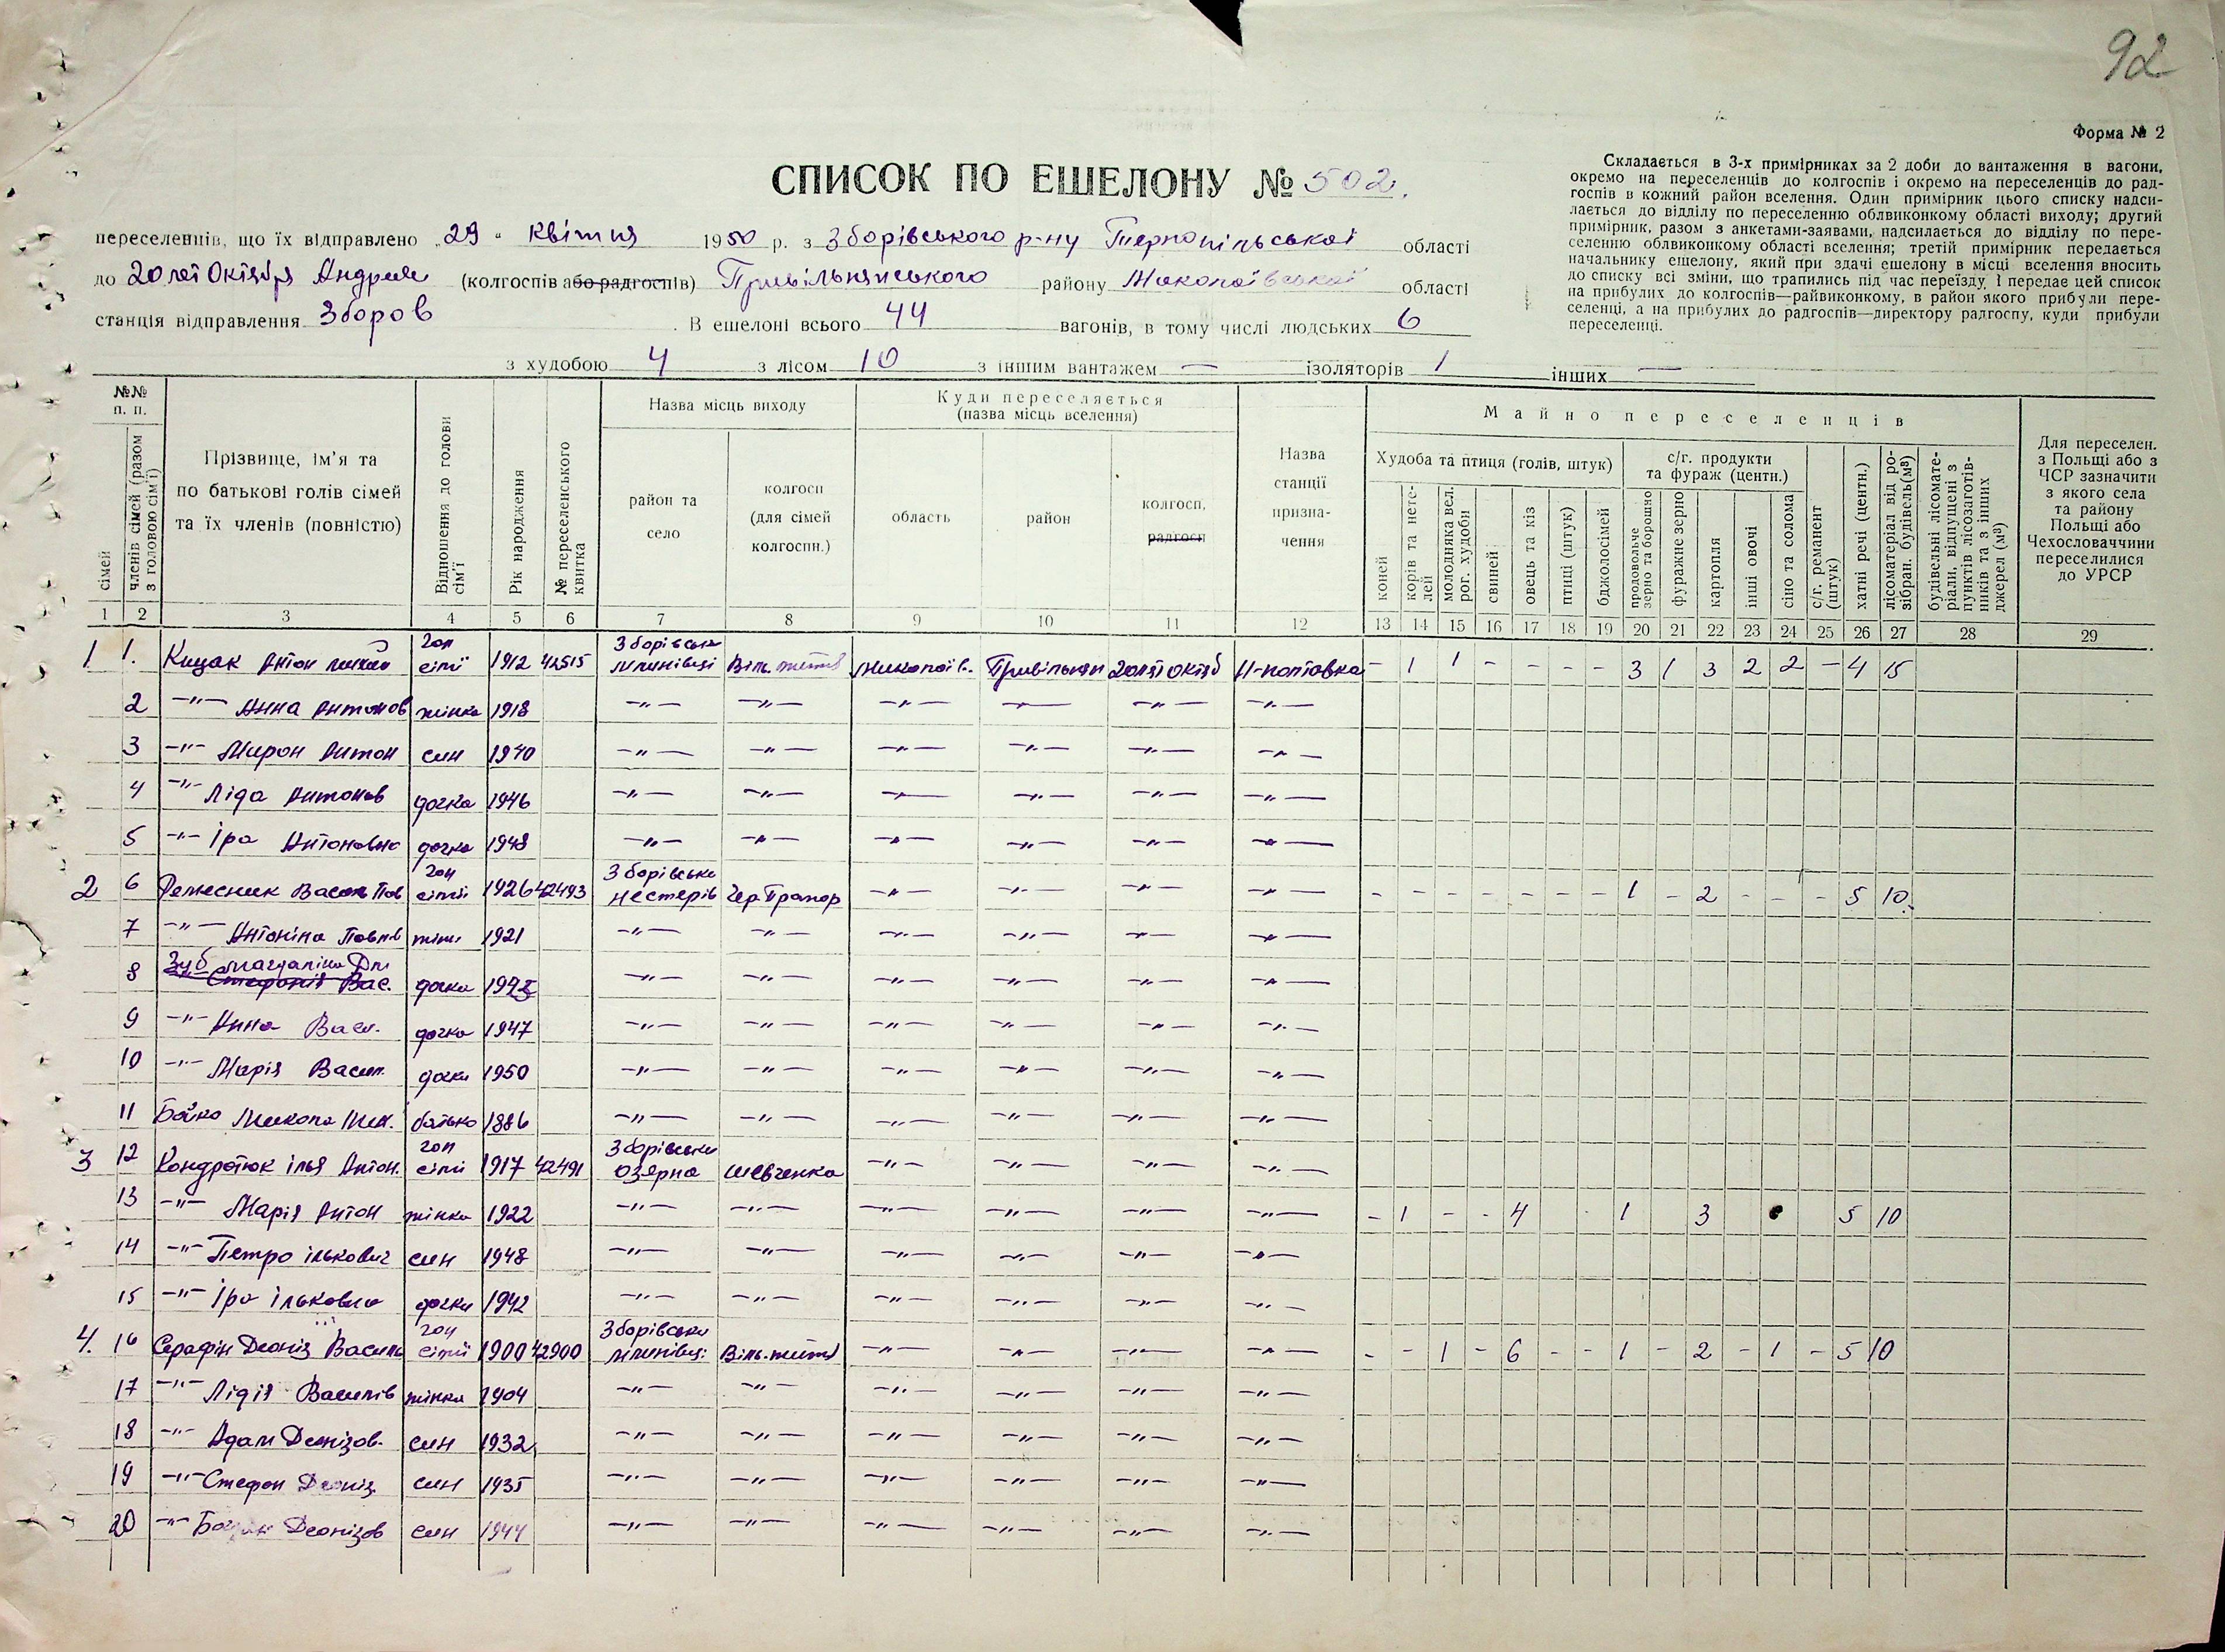 92
Форма № 2
СПИСОК ПО ЕШЕЛОНУ № 502.
Складається в 3-х примірниках за 2 доби до вантаження в вагони,
окремо на переселенців до колгоспів і окремо на переселенців до рад-
госпів в кожний район вселення. Один примірник цього списку надси-
лається до відділу по переселенню облвиконкому області виходу; другий
примірник, разом з анкетами-заявами, надсилається до відділу по пере-
селенню облвиконкому області вселення; третій примірник передається
начальнику ешелону, який при здачі ешелону в місці вселення вносить
до списку всі зміни, що трапились під час переїзду і передає цей список
на прибулих до колгоспів—райвиконкому, в район якого прибули пере-
селенці, а на прибулих до радгоспів—директору радгоспу, куди прибули
переселенці.
переселенців, що їх відправлено „29“ квітня 1950 р. з Зборівського р-ну Тернопільської області
до 20 літ Октября Андрея (колгоспів або радгоспів) Привільнянського району Миколаївської області
станція відправлення Зборов . В ешелоні всього 44 вагонів, в тому числі людських 6
з худобою 4 з лісом 10 з іншим вантажем — ізоляторів 1 інших —
№№ п. п.
сімей
членів сімей (разом з головою сім'ї)
Прізвище, ім'я та
по батькові голів сімей
та їх членів (повністю)
Відношення до голови сім'ї
Рік народження
№ переселенського квитка
Назва місць виходу
район та
село
колгосп
(для сімей
колгоспн.)
Куди переселяється
(назва місць вселення)
область
район
колгосп,
радгосп
Назва
станції
призна-
чення
Майно переселенців
Худоба та птиця (голів, штук)
коней
корів та нете-
лей
молодняка вел.
рог. худоби
свиней
овець та кіз
птиці (штук)
бджолосімей
с/г. продукти
та фураж (центн.)
продовольче
зерно та борошно
фуражне зерно
картопля
інші овочі
сіно та солома
с/г. реманент
(штук)
хатні речі (центн.)
лісоматеріал від ро-
зібран. будівель(м³)
будівельні лісомате-
ріали, відпущені з
пунктів лісозаготів-
ників та з інших
джерел (м³)
Для переселен.
з Польщі або з
ЧСР зазначити
з якого села
та району
Польщі або
Чехословаччини
переселилися
до УРСР
1 2 3 4 5 6 7 8 9 10 11 12 13 14 15 16 17 18 19 20 21 22 23 24 25 26 27 28 29
1 1. Кицак Антон гол сімї 1912 42515 Зборівськ Млинівці Віль. життя Миколаїв. Привільнян 20 літ Октяб Н-полтовка - 1 1 - - - - 3 1 3 2 2 - 4 15
2 -"- Анна Антонов жінка 1918 -"- -"- -"- -"- -"- -"-
3 -"- Мирон Антон син 1940 -"- -"- -"- -"- -"- -"-
4 -"- Ліда Антонов дочка 1946 -"- -"- -"- -"- -"- -"-
5 -"- Іра Антоновна дочка 1948 -"- -"- -"- -"- -"- -"-
2 6 Ремесник Василь Пав гол сімї 1926 42493 Зборівськи Нестерів Чер Прапор -"- -"- -"- -"- - - - - - - - 1 - 2 - - - 5 10.
7 -"- Антоніна Павлів жінк 1921 -"- -"- -"- -"- -"- -"-
8 Зуб Магдаліна Дм Стефонія Вас. дочка 1942 -"- -"- -"- -"- -"- -"-
9 -"- Анна Вас. дочка 1947 -"- -"- -"- -"- -"- -"-
10 -"- Марія Васил. дочка 1950 -"- -"- -"- -"- -"- -"-
11 Бойко Микола Мих. батько 1886 -"- -"- -"- -"- -"- -"-
3 12 Кондротюк Ілья Антон. гол сімї 1917 42491 Зборівськи Озярна Шевченка -"- -"- -"- -"-
13 -"- Марія Антон жінка 1922 -"- -"- -"- -"- -"- -"- - 1 - - 4 - 1 3 5 10
14 -"- ПетроІлькович син 1948 -"- -"- -"- -"- -"- -"-
15 -"- Іра Ільковна дочка 1942 -"- -"- -"- -"- -"- -"-
4. 16 Серафін Деоніз Василь гол сімї 1900 42900 Зборівськи Млинівці Віль. життя -"- -"- -"- -"- - - 1 - 6 - - 1 - 2 - 1 - 5 10
17 -"- Лідія Василів жінка 1904 -"- -"- -"- -"- -"- -"-
18 -"- Адам Деонізов. син 1932 -"- -"- -"- -"- -"- -"-
19 -"- Стефон Деоніз син 1935 -"- -"- -"- -"- -"- -"-
20 -"- Богдан Деонізов син 1944 -"- -"- -"- -"- -"- -"-